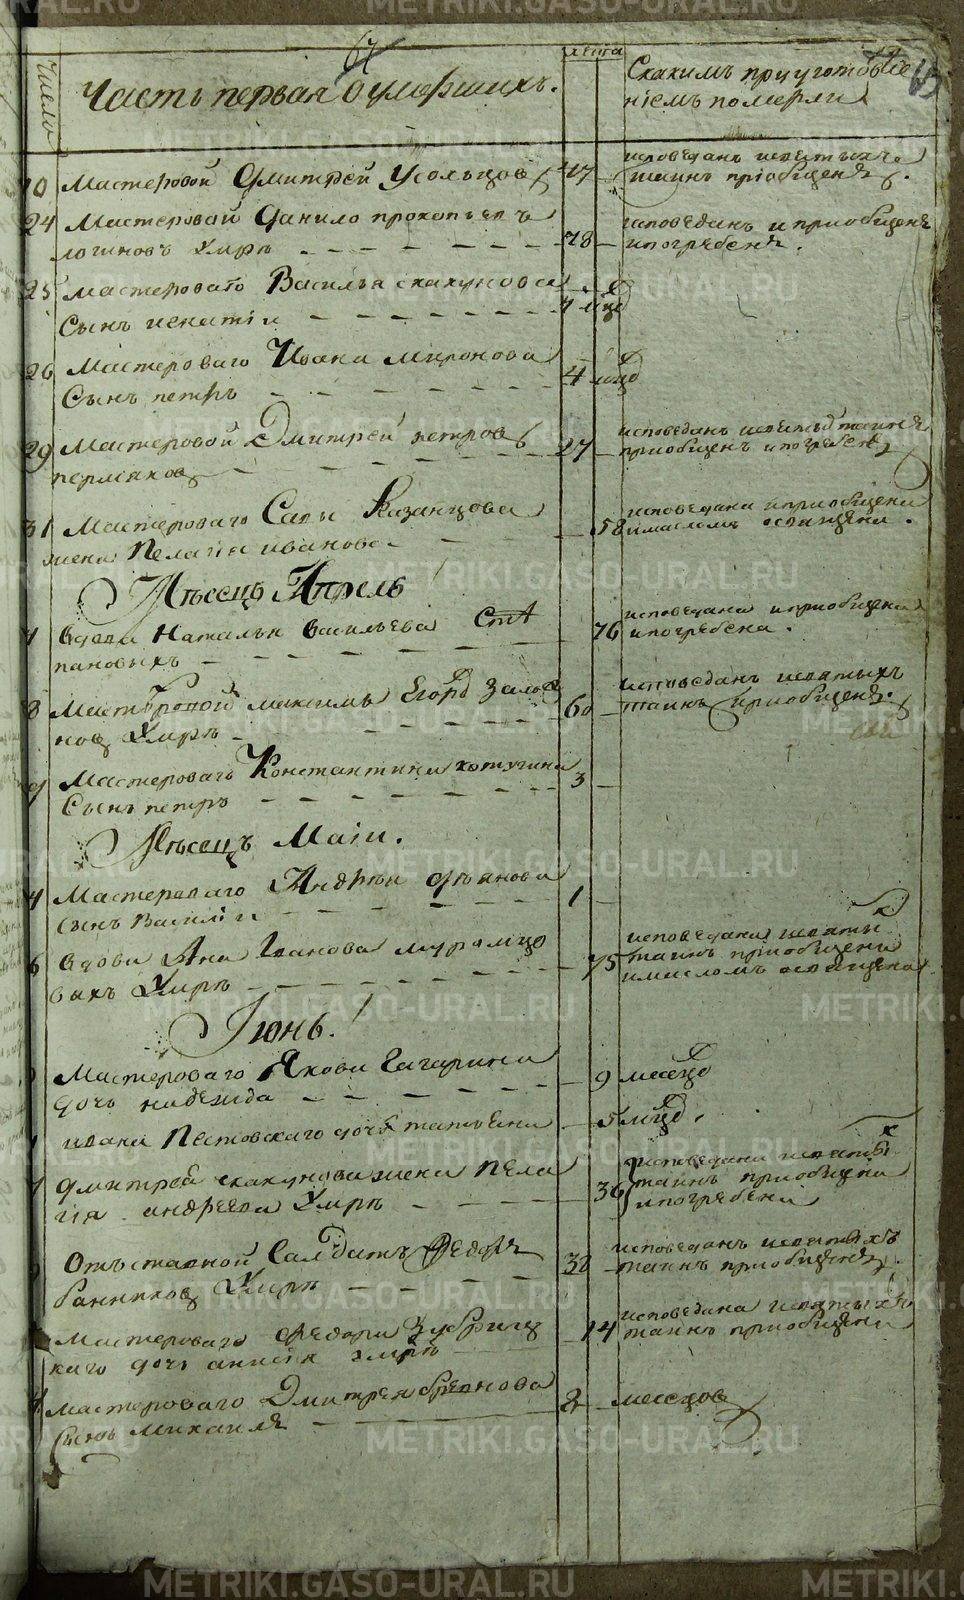 67
число
Часть первая о умершихъ.
лета
Скакимъ приуготовле
ніемъ померли
10 Мастеровой Дмитрей Усольцов 47
исповеданъ исвятыхъ
таинъ приобщенъ.
24 Мастеровой Данило прокопьевъ
логиновъ Умръ 78
исповеданъ и приобщенъ
ипогребенъ.
25 мастероваго Василья скакунова
Сынъ игнатіи 4 мцд
26 Мастероваго Ивана миронова
Сынъ петръ 4 мцд
29 Мастеровой Дмитрей петров
пермяков 27
исповеданъ исвятыхъ таинъ
приобщенъ ипогребенъ
31 Мастероваго Савы Казанцова
жена Пелагия иванова 58
исповедана иприобщена
имаслом освящена.
Месецъ Апрель
Вдова Наталья Васильева Стѣ
пановыхъ 76
исповедана иприобщена
ипогребена.
8 Мастеровой максимъ Егоров
нов Умръ 60
исповеданъ исвятыхъ
таинъ приобщенъ.
9 Мастероваго Константина хотугина
Сынъ петръ 3
Месецъ Маіи.
4 Мастероваго Андрея
сынъ Василіи 1
6 Вдова Анна Іванова муромцо
выхъ Умръ 75
исповедана исвяты
таинъ приобщена
имаслом освящена
Іюнь.
Мастероваго Якова Гагарина
дочь надежда 9 месецов
ивана Пестовскаго дочь татьяна 5 мцд.
дмитрея скакунова жена пела
гия андреева Умръ 36
исповедана исвяты
таинъ приобщена
ипогребена
Отъставной Салдатъ Федоръ
банников Умръ 38
исповеданъ исвятыхъ
таинъ приобщенъ.
мастероваго Федора Зубриц
каго дочь анисия умръ 14
исповедана исвятыхъ
таинъ приобщена
мастероваго Дмитрея бревнова
Сынъ Михаилъ 2 месецов
METRIKI.GASO-URAL.RU